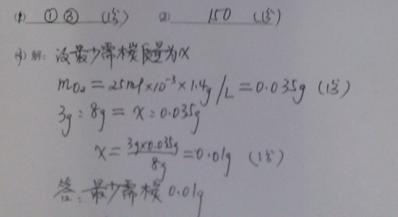 (1) ①③ (1分) (2) 150 (1分)
(3) 解：设最少需碳质量为x
mO₂=25ml×10⁻³×1.4g/L=0.035g (1分)
3g：8g=x：0.035g
x=3g×0.035g/8g=0.01g (1分)
答：最少需碳0.01g